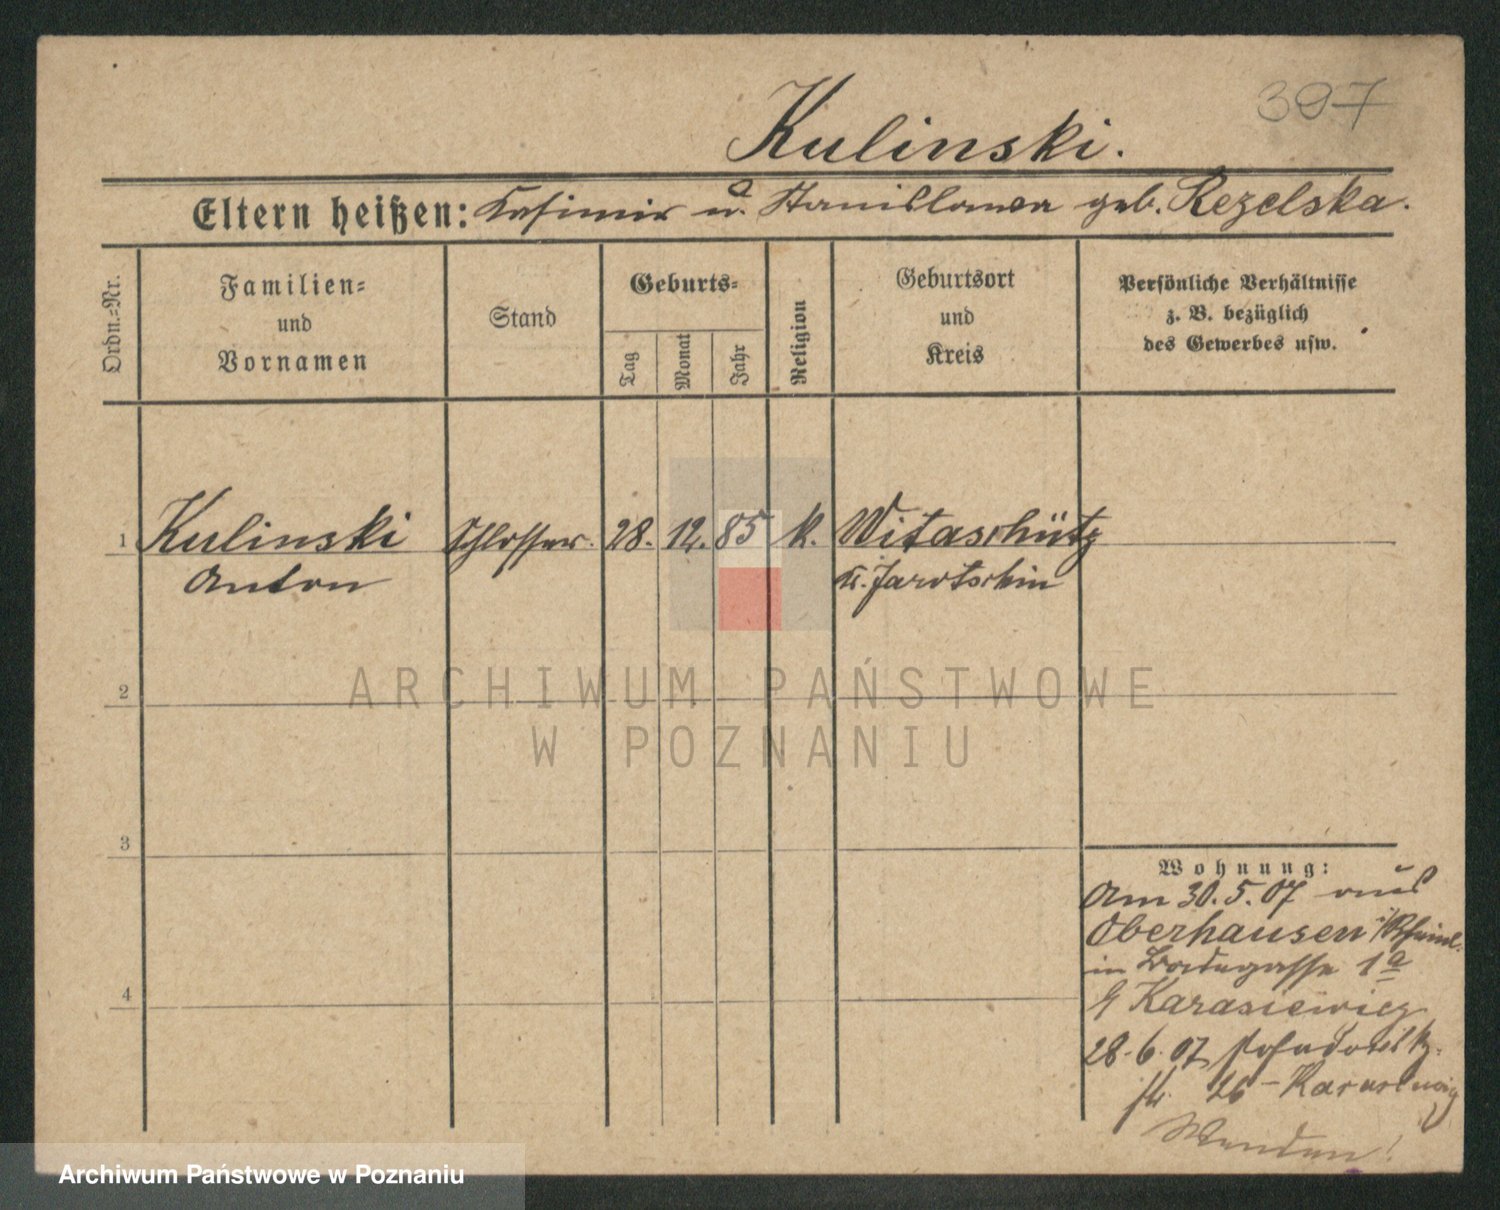 397
Kulinski.
Eltern heißen: Kasimir u. Stanislawa geb. Rezelska.
Ordn.=Nr.
Familien=
und
Vornamen
Stand
Geburts=
Tag
Monat
Jahr
Religion
Geburtsort
und
Kreis
Persönliche Verhältnisse
z. B. bezüglich
des Gewerbes usw.
1 Kulinski Schlosser. 28. 12. 85 k. Witaschütz
Anton K. Jarotschin
2
3
4
Wohnung:
Am 30.5.07 aus
Oberhausen i/Rheinl.
in 1a
Karasiewicz
28.6.07
26 -
Wenden!
ARCHIWUM PAŃSTWOWE
W POZNANIU
Archiwum Państwowe w Poznaniu